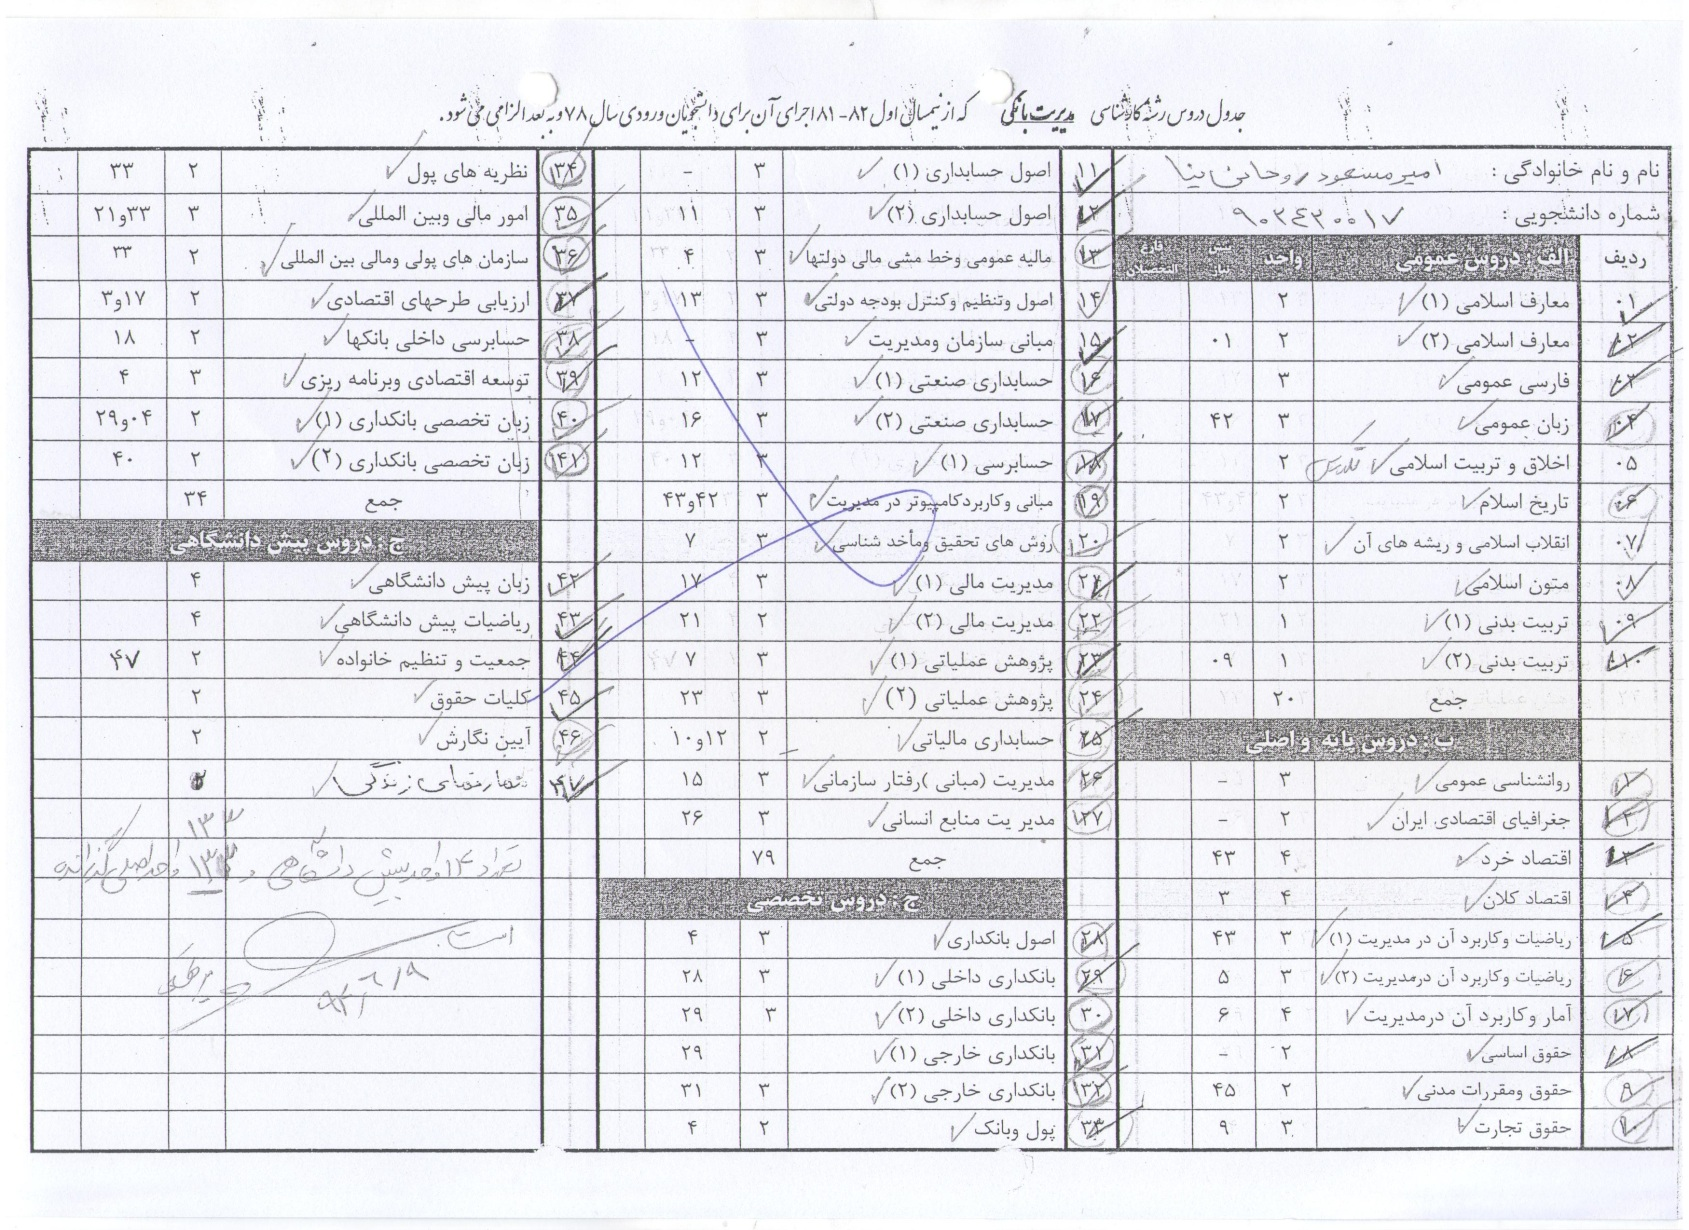 جدول دروس رشته کارشناسی مدیریت بانکی که از نیمسال اول ۸۲-۸۱ اجرای آن برای دانشجویان ورودی سال ۷۸ و به بعد الزامی می شود.
نام و نام خانوادگی : امیرمسعود روحانی نیا
شماره دانشجویی : ۹۰۲۴۲۰۰۱۷
ردیف الف : دروس عمومی واحد پیش نیاز فارغ التحصیلان
۰۱ معارف اسلامی (۱) ۲
۰۲ معارف اسلامی (۲) ۲ ۰۱
۰۳ فارسی عمومی ۳
۰۴ زبان عمومی ۳ ۴۲
۰۵ اخلاق و تربیت اسلامی ۲
۰۶ تاریخ اسلام ۲
۰۷ انقلاب اسلامی و ریشه های آن ۲
۰۸ متون اسلامی ۲
۰۹ تربیت بدنی (۱) ۱
۱۰ تربیت بدنی (۲) ۱ ۰۹
جمع ۲۰
ب : دروس پایه و اصلی
۱ روانشناسی عمومی ۳ -
۲ جغرافیای اقتصادی ایران ۲ -
۳ اقتصاد خرد ۴ ۴۳
۴ اقتصاد کلان ۴ ۳
۵ ریاضیات وکاربرد آن در مدیریت (۱) ۳ ۴۳
۶ ریاضیات وکاربرد آن درمدیریت (۲) ۳ ۵
۷ آمار وکاربرد آن درمدیریت ۴ ۶
۸ حقوق اساسی ۲ -
۹ حقوق ومقررات مدنی ۲ ۴۵
۱۰ حقوق تجارت ۳ ۹
۱۱ اصول حسابداری (۱) ۳ -
۱۲ اصول حسابداری (۲) ۳ ۱۱
۱۳ مالیه عمومی وخط مشی مالی دولتها ۳ ۴
۱۴ اصول وتنظیم وکنترل بودجه دولتی ۳ ۱۳
۱۵ مبانی سازمان ومدیریت ۳ -
۱۶ حسابداری صنعتی (۱) ۳ ۱۲
۱۷ حسابداری صنعتی (۲) ۳ ۱۶
۱۸ حسابرسی (۱) ۳ ۱۲
۱۹ مبانی وکاربردکامپیوتر در مدیریت ۳ ۴۲و۴۳
۲۰ روش های تحقیق ومأخد شناسی ۳ ۷
۲۱ مدیریت مالی (۱) ۳ ۱۷
۲۲ مدیریت مالی (۲) ۲ ۲۱
۲۳ پژوهش عملیاتی (۱) ۳ ۷
۲۴ پژوهش عملیاتی (۲) ۳ ۲۳
۲۵ حسابداری مالیاتی ۲ ۱۲و۱۰
۲۶ مدیریت (مبانی )رفتار سازمانی ۳ ۱۵
۲۷ مدیر یت منابع انسانی ۳ ۲۶
جمع ۷۹
ج : دروس تخصصی
۲۸ اصول بانکداری ۳ ۴
۲۹ بانکداری داخلی (۱) ۳ ۲۸
۳۰ بانکداری داخلی (۲) ۳ ۲۹
۳۱ بانکداری خارجی (۱) ۲۹
۳۲ بانکداری خارجی (۲) ۳ ۳۱
۳۳ پول وبانک ۲ ۴
۳۴ نظریه های پول ۲ ۳۳
۳۵ امور مالی وبین المللی ۳ ۳۳و۲۱
۳۶ سازمان های پولی ومالی بین المللی ۲ ۳۳
۳۷ ارزیابی طرحهای اقتصادی ۲ ۱۷و۳
۳۸ حسابرسی داخلی بانکها ۲ ۱۸
۳۹ توسعه اقتصادی وبرنامه ریزی ۳ ۴
۴۰ زبان تخصصی بانکداری (۱) ۲ ۰۴و۲۹
۴۱ زبان تخصصی بانکداری (۲) ۲ ۴۰
جمع ۳۴
ج : دروس پیش دانشگاهی
۴۲ زبان پیش دانشگاهی ۴
۴۳ ریاضیات پیش دانشگاهی ۴
۴۴ جمعیت و تنظیم خانواده ۲ ۴۷
۴۵ کلیات حقوق ۲
۴۶ آیین نگارش ۲
۴۷ مهارتهای زندگی ۲
۱۳۳
تعداد ۱۴ واحد پیش دانشگاهی و ۱۳۳ واحد اصلی گذرانده
است.
۹۳/۶/۹